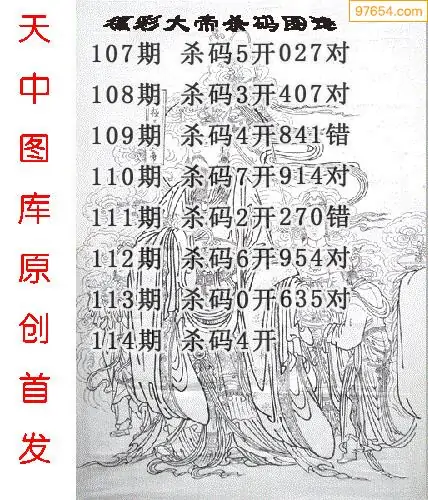 97654.com
福彩大帝杀码图逸
天中图库原创首发
107期 杀码5开027对
108期 杀码3开407对
109期 杀码4开841错
110期 杀码7开914对
111期 杀码2开270错
112期 杀码6开954对
113期 杀码0开635对
114期 杀码4开